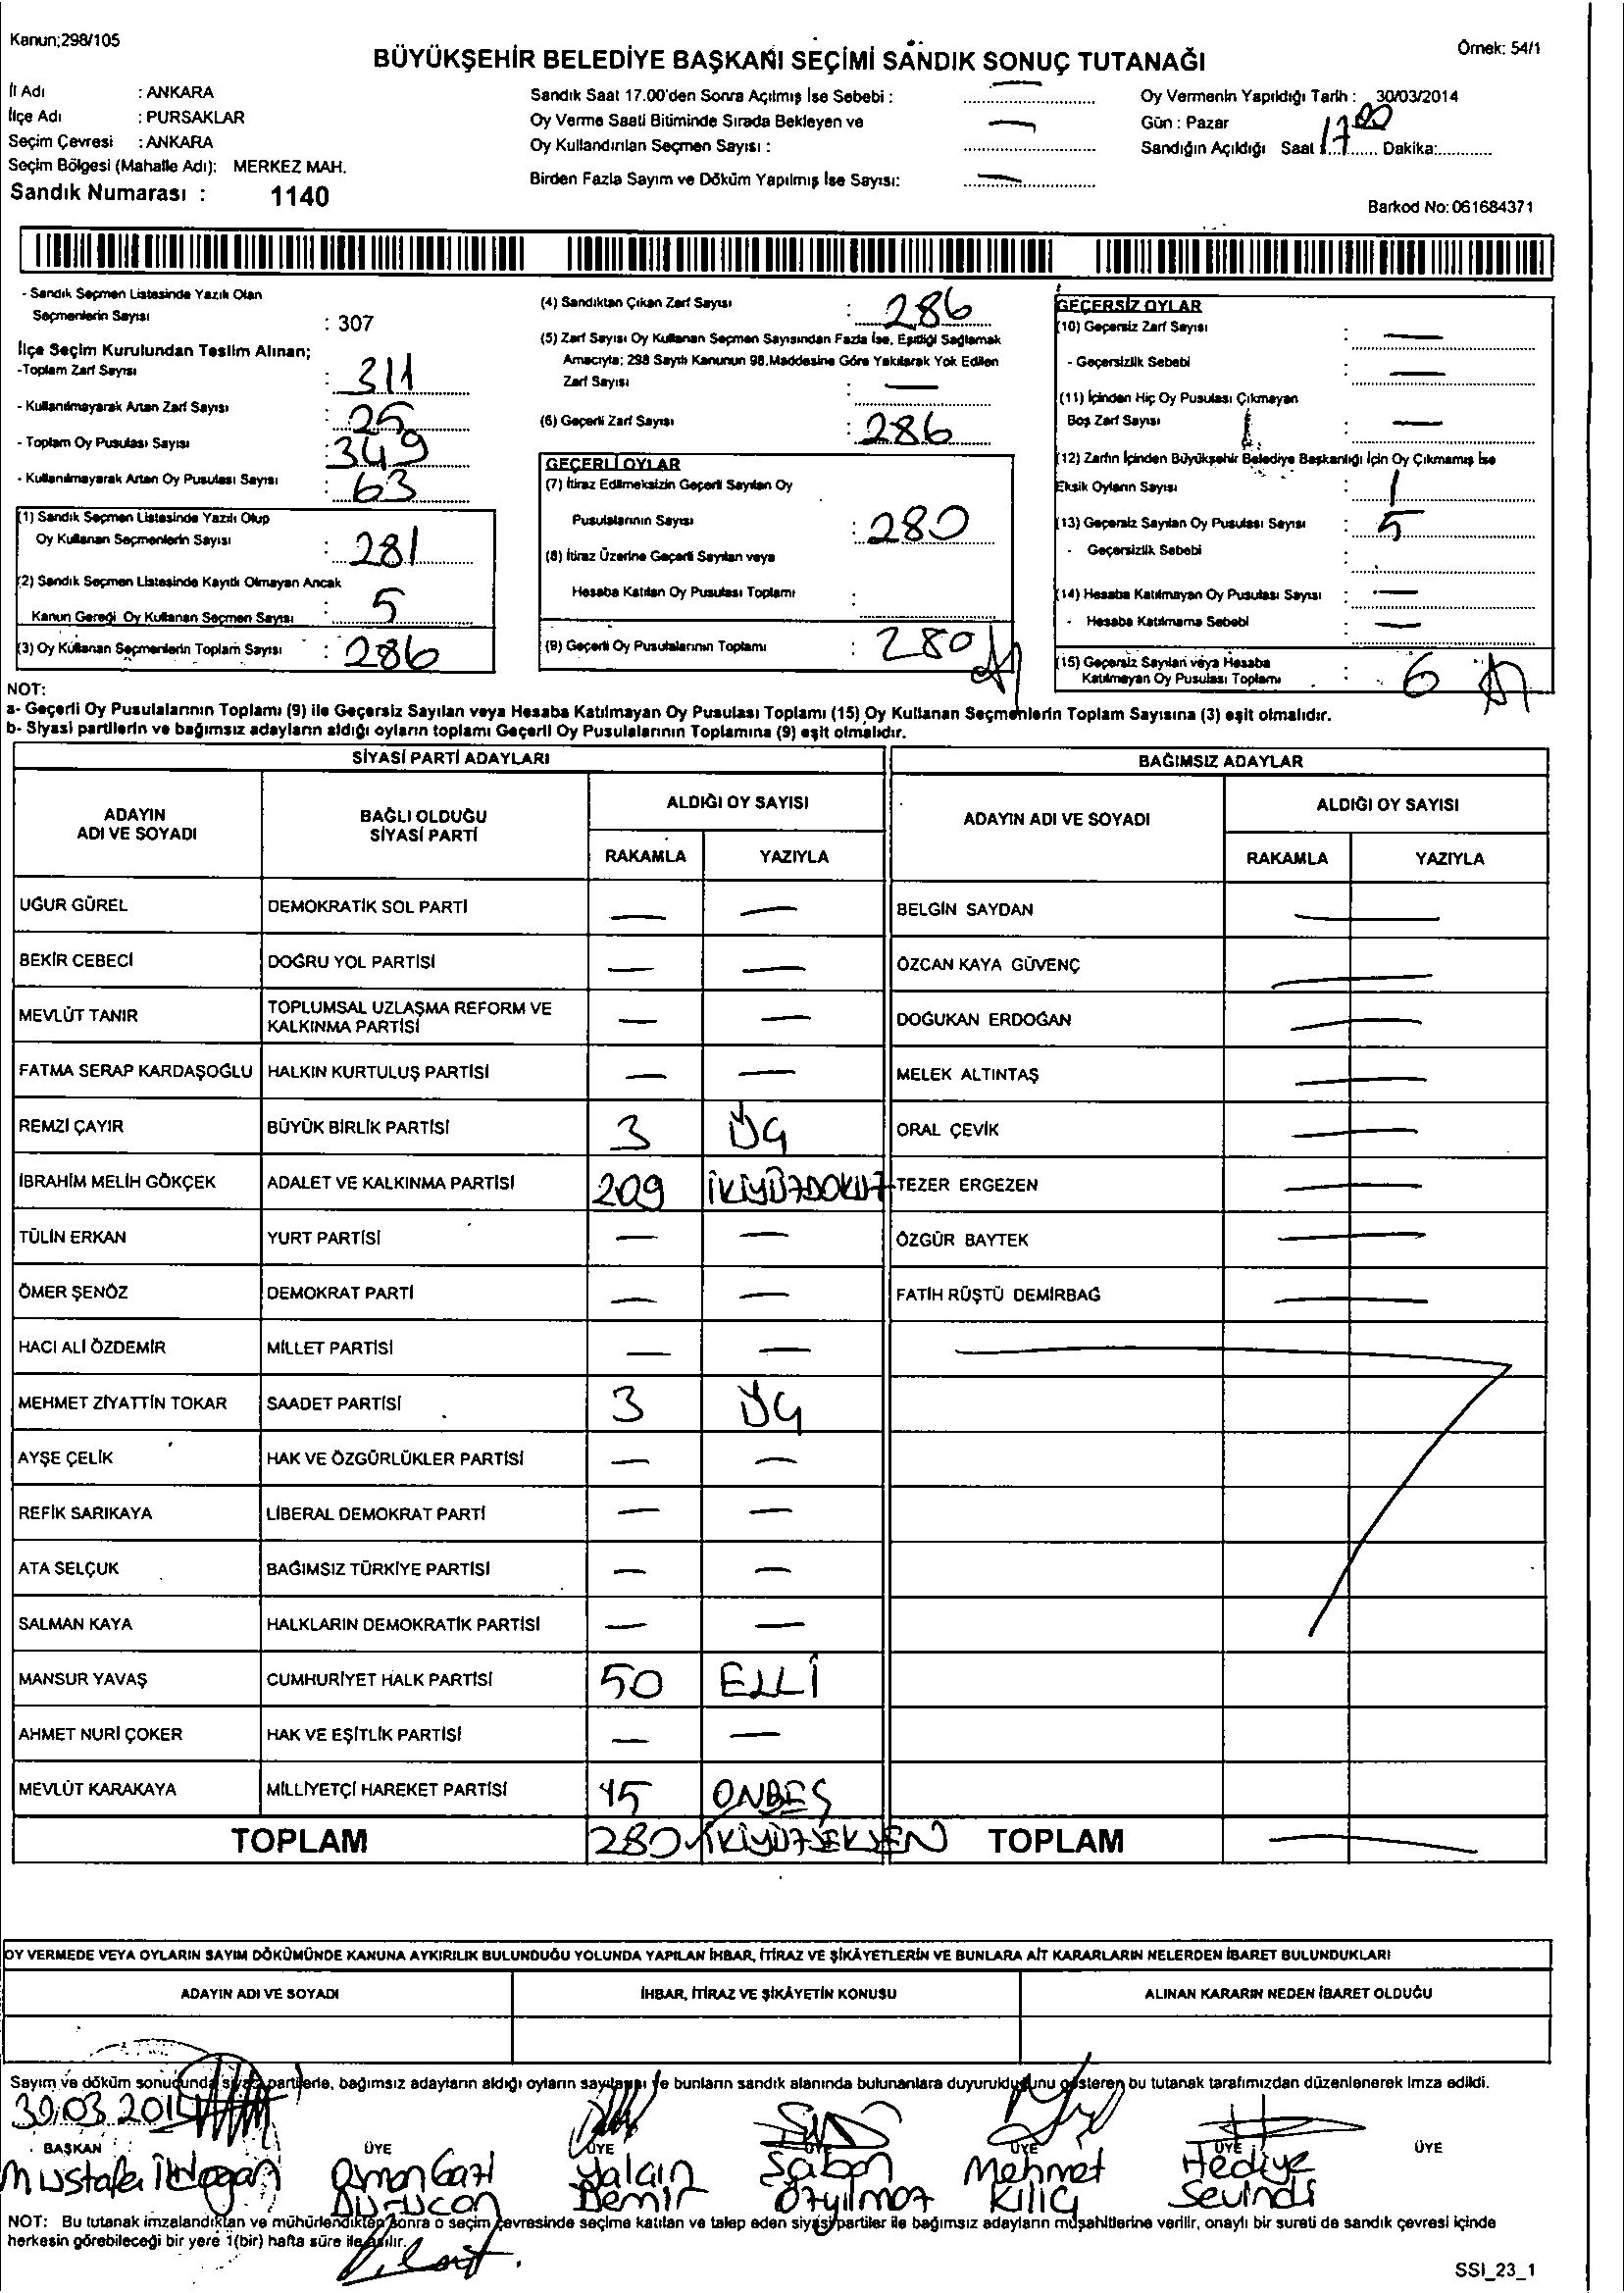 Kanun;298/105
Örnek: 54/1
BÜYÜKŞEHİR BELEDİYE BAŞKANI SEÇİMİ SANDIK SONUÇ TUTANAĞI
İl Adı : ANKARA
İlçe Adı : PURSAKLAR
Seçim Çevresi : ANKARA
Seçim Bölgesi (Mahalle Adı): MERKEZ MAH.
Sandık Numarası : 1140
Sandık Saat 17.00'den Sonra Açılmış İse Sebebi : —
Oy Verme Saati Bitiminde Sırada Bekleyen ve
Oy Kullandırılan Seçmen Sayısı : —
Birden Fazla Sayım ve Döküm Yapılmış İse Sayısı: —
Oy Vermenin Yapıldığı Tarih : 30/03/2014
Gün : Pazar
Sandığın Açıldığı Saat 17.00 Dakika:
Barkod No:061684371
- Sandık Seçmen Listesinde Yazılı Olan
Seçmenlerin Sayısı : 307
İlçe Seçim Kurulundan Teslim Alınan;
-Toplam Zarf Sayısı : 311
- Kullanılmayarak Artan Zarf Sayısı : 25
- Toplam Oy Pusulası Sayısı : 349
- Kullanılmayarak Artan Oy Pusulası Sayısı : 63
(1) Sandık Seçmen Listesinde Yazılı Olup
Oy Kullanan Seçmenlerin Sayısı : 281
(2) Sandık Seçmen Listesinde Kayıtlı Olmayan Ancak
Kanun Gereği Oy Kullanan Seçmen Sayısı : 5
(3) Oy Kullanan Seçmenlerin Toplam Sayısı : 286
(4) Sandıktan Çıkan Zarf Sayısı : 286
(5) Zarf Sayısı Oy Kullanan Seçmen Sayısından Fazla İse, Eşitliği Sağlamak
Amacıyla; 298 Sayılı Kanunun 98.Maddesine Göre Yakılarak Yok Edilen
Zarf Sayısı : —
(6) Geçerli Zarf Sayısı : 286
GEÇERLİ OYLAR
(7) İtiraz Edilmeksizin Geçerli Sayılan Oy
Pusulalarının Sayısı : 280
(8) İtiraz Üzerine Geçerli Sayılan veya
Hesaba Katılan Oy Pusulası Toplamı :
(9) Geçerli Oy Pusulalarının Toplamı : 280
GEÇERSİZ OYLAR
(10) Geçersiz Zarf Sayısı : —
- Geçersizlik Sebebi : —
(11) İçinden Hiç Oy Pusulası Çıkmayan
Boş Zarf Sayısı : —
(12) Zarfın İçinden Büyükşehir Belediye Başkanlığı İçin Oy Çıkmamış İse
Eksik Oyların Sayısı : 1
(13) Geçersiz Sayılan Oy Pusulası Sayısı : 5
- Geçersizlik Sebebi :
(14) Hesaba Katılmayan Oy Pusulası Sayısı : —
- Hesaba Katılmama Sebebi : —
(15) Geçersiz Sayılan veya Hesaba
Katılmayan Oy Pusulası Toplamı : 6
NOT:
a- Geçerli Oy Pusulalarının Toplamı (9) ile Geçersiz Sayılan veya Hesaba Katılmayan Oy Pusulası Toplamı (15) Oy Kullanan Seçmenlerin Toplam Sayısına (3) eşit olmalıdır.
b- Siyasi partilerin ve bağımsız adayların aldığı oyların toplamı Geçerli Oy Pusulalarının Toplamına (9) eşit olmalıdır.
SİYASİ PARTİ ADAYLARI
ADAYIN ADI VE SOYADI BAĞLI OLDUĞU SİYASİ PARTİ ALDIĞI OY SAYISI
RAKAMLA YAZIYLA
UĞUR GÜREL DEMOKRATİK SOL PARTİ — —
BEKİR CEBECİ DOĞRU YOL PARTİSİ — —
MEVLÜT TANIR TOPLUMSAL UZLAŞMA REFORM VE KALKINMA PARTİSİ — —
FATMA SERAP KARDAŞOĞLU HALKIN KURTULUŞ PARTİSİ — —
REMZİ ÇAYIR BÜYÜK BİRLİK PARTİSİ 3 ÜÇ
İBRAHİM MELİH GÖKÇEK ADALET VE KALKINMA PARTİSİ 209 İKİYÜZDOKUZ
TÜLİN ERKAN YURT PARTİSİ — —
ÖMER ŞENÖZ DEMOKRAT PARTİ — —
HACI ALİ ÖZDEMİR MİLLET PARTİSİ — —
MEHMET ZİYATTİN TOKAR SAADET PARTİSİ 3 ÜÇ
AYŞE ÇELİK HAK VE ÖZGÜRLÜKLER PARTİSİ — —
REFİK SARIKAYA LİBERAL DEMOKRAT PARTİ — —
ATA SELÇUK BAĞIMSIZ TÜRKİYE PARTİSİ — —
SALMAN KAYA HALKLARIN DEMOKRATİK PARTİSİ — —
MANSUR YAVAŞ CUMHURİYET HALK PARTİSİ 50 ELLİ
AHMET NURİ ÇOKER HAK VE EŞİTLİK PARTİSİ — —
MEVLÜT KARAKAYA MİLLİYETÇİ HAREKET PARTİSİ 15 ONBEŞ
TOPLAM 280 İKİYÜZSEKSEN
BAĞIMSIZ ADAYLAR
ADAYIN ADI VE SOYADI ALDIĞI OY SAYISI
RAKAMLA YAZIYLA
BELGİN SAYDAN —
ÖZCAN KAYA GÜVENÇ —
DOĞUKAN ERDOĞAN —
MELEK ALTINTAŞ —
ORAL ÇEVİK —
TEZER ERGEZEN —
ÖZGÜR BAYTEK —
FATİH RÜŞTÜ DEMİRBAĞ —
TOPLAM —
OY VERMEDE VEYA OYLARIN SAYIM DÖKÜMÜNDE KANUNA AYKIRILIK BULUNDUĞU YOLUNDA YAPILAN İHBAR, İTİRAZ VE ŞİKÂYETLERİN VE BUNLARA AİT KARARLARIN NELERDEN İBARET BULUNDUKLARI
ADAYIN ADI VE SOYADI İHBAR, İTİRAZ VE ŞİKÂYETİN KONUSU ALINAN KARARIN NEDEN İBARET OLDUĞU
Sayım ve döküm sonucunda siyasi partilerle, bağımsız adayların aldığı oyların sayılarını ve bunların sandık alanında bulunanlara duyurulduğunu gösteren bu tutanak tarafımızdan düzenlenerek imza edildi.
30.03.2014
BAŞKAN ÜYE ÜYE ÜYE ÜYE ÜYE ÜYE
Mustafa Osman Gazi Yalçın Şaban Mehmet Hediye
Demir Özyılmaz Kılıç Sevindi
NOT: Bu tutanak imzalandıktan ve mühürlendikten sonra o seçim çevresinde seçime katılan ve talep eden siyasi partiler ile bağımsız adayların müşahitlerine verilir, onaylı bir sureti de sandık çevresi içinde
herkesin görebileceği bir yere 1(bir) hafta süre ile asılır.
SSI_23_1